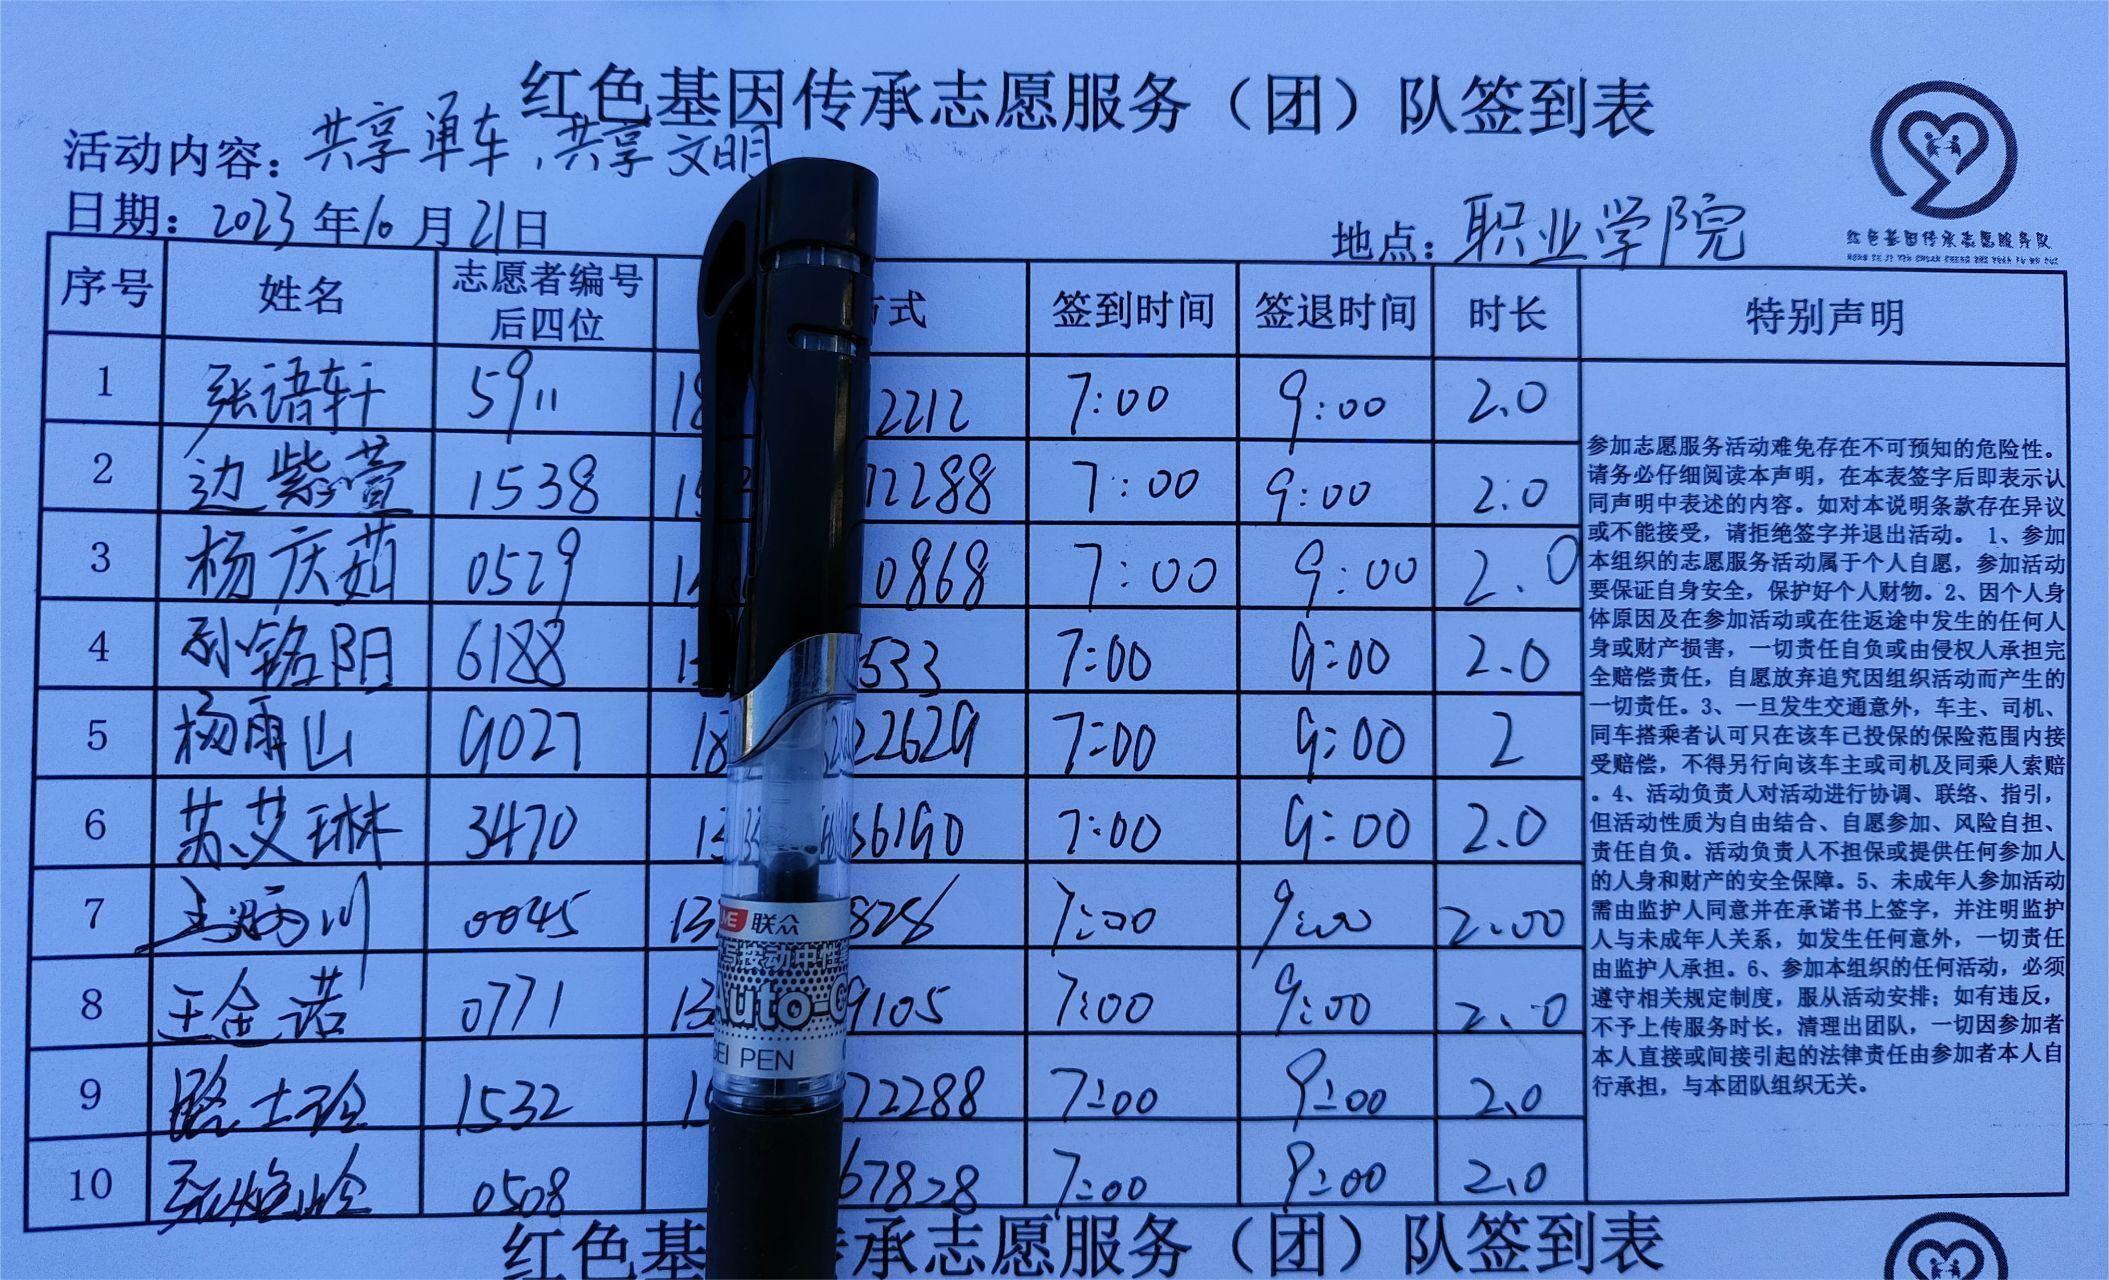 红色基因传承志愿服务（团）队签到表
活动内容：共享单车，共享文明
日期：2023年10月21日
地点：职业学院
红色基因传承志愿服务队
序号 姓名 志愿者编号后四位 方式 签到时间 签退时间 时长 特别声明
1 张语轩 5911 18 2212 7:00 9:00 2.0
2 边紫萱 1538 15 72288 7:00 9:00 2.0
3 杨庆茹 0529 0868 7:00 9:00 2.0
4 孙铭阳 6188 533 7:00 9:00 2.0
5 杨雨山 9027 18 22629 7:00 9:00 2
6 苏艾琳 3470 13 36190 7:00 9:00 2.0
7 0045 13 828 7:00 9:00 2.00
8 王金诺 0771 13 9105 7:00 9:00 2.0
9 1532 15 72288 7:00 9:00 2.0
10 0508 67828 7:00 9:00 2.0
参加志愿服务活动难免存在不可预知的危险性。
请务必仔细阅读本声明，在本表签字后即表示认
同声明中表述的内容。如对本说明条款存在异议
或不能接受，请拒绝签字并退出活动。 1、参加
本组织的志愿服务活动属于个人自愿，参加活动
要保证自身安全，保护好个人财物。2、因个人身
体原因及在参加活动或在往返途中发生的任何人
身或财产损害，一切责任自负或由侵权人承担完
全赔偿责任，自愿放弃追究因组织活动而产生的
一切责任。3、一旦发生交通意外，车主、司机、
同车搭乘者认可只在该车已投保的保险范围内接
受赔偿，不得另行向该车主或司机及同乘人索赔
。4、活动负责人对活动进行协调、联络、指引，
但活动性质为自由结合、自愿参加、风险自担、
责任自负。活动负责人不担保或提供任何参加人
的人身和财产的安全保障。5、未成年人参加活动
需由监护人同意并在承诺书上签字，并注明监护
人与未成年人关系，如发生任何意外，一切责任
由监护人承担。6、参加本组织的任何活动，必须
遵守相关规定制度，服从活动安排；如有违反，
不予上传服务时长，清理出团队，一切因参加者
本人直接或间接引起的法律责任由参加者本人自
行承担，与本团队组织无关。
联众
Auto-G
PEN
红色基 传承志愿服务（团）队签到表